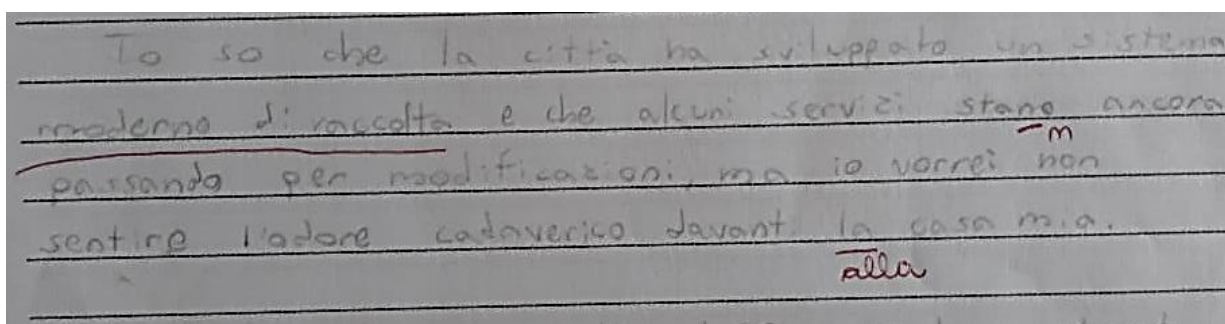 Io so che la città ha sviluppato un sistema
moderno di raccolta e che alcuni servizi stano ancora
n
passando per modificazioni, ma io vorrei non
sentire l'odore cadaverico davanti la casa mia.
alla